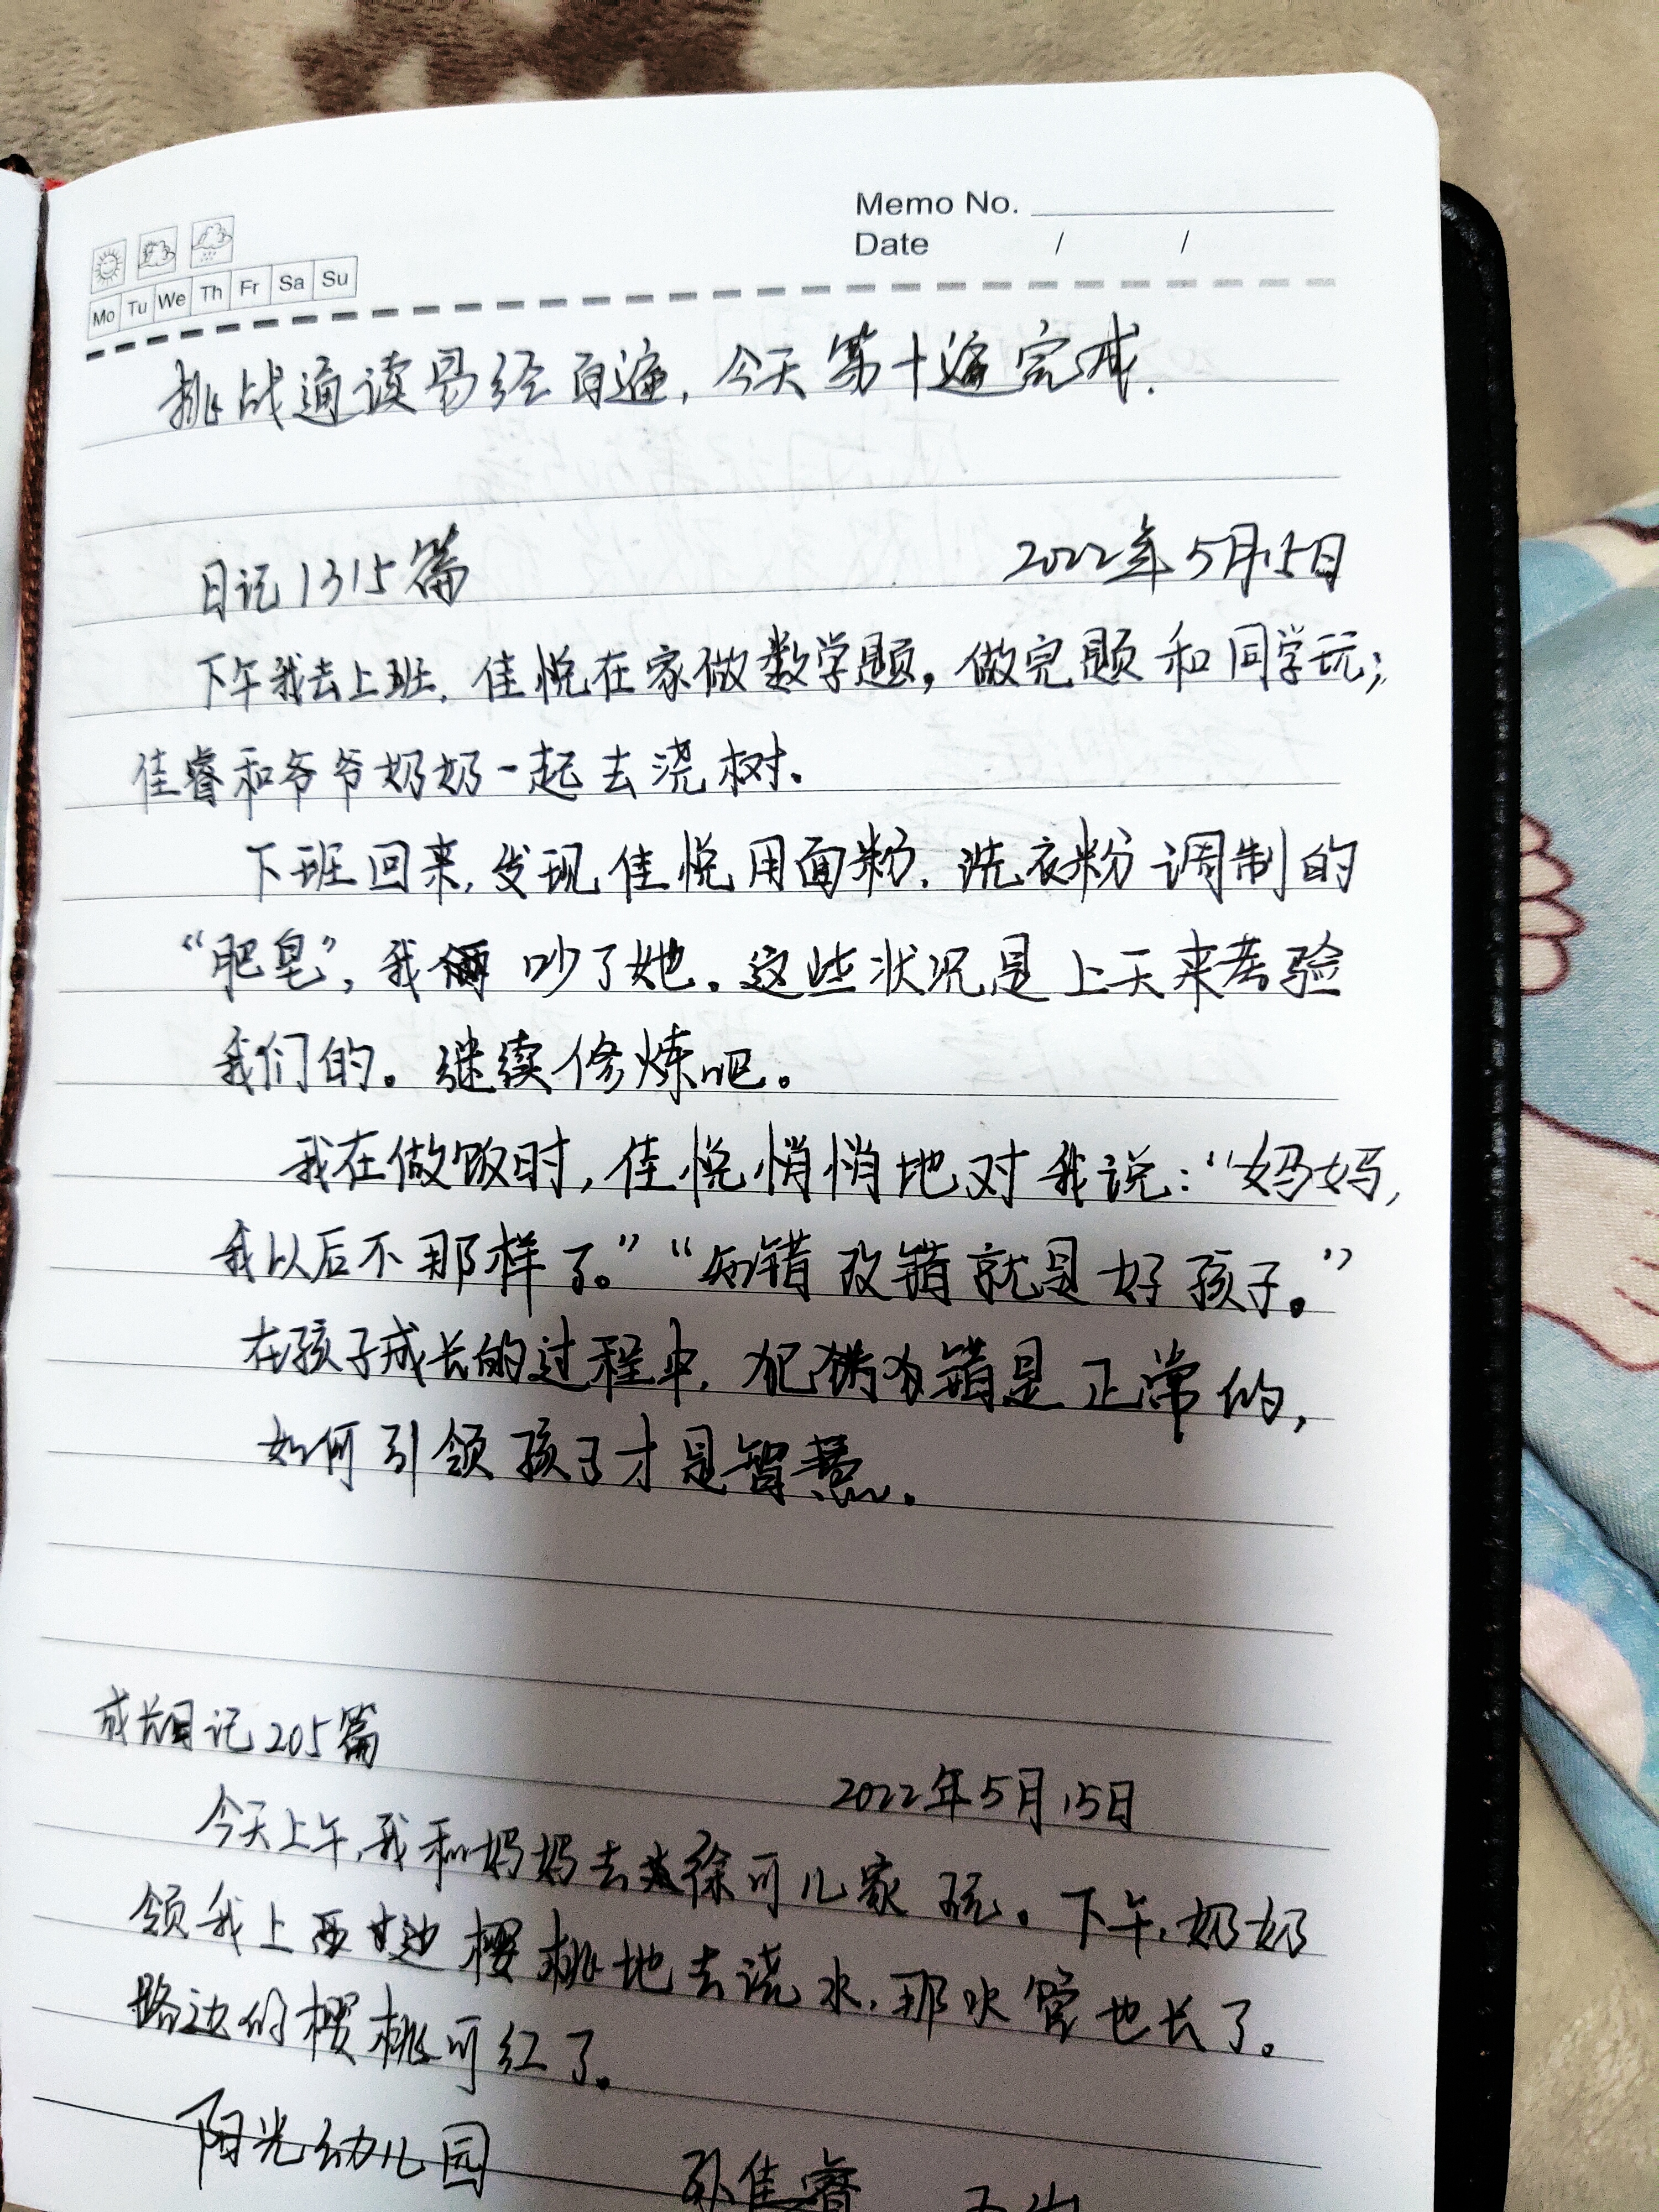 Memo No.
Date / /
Mo Tu We Th Fr Sa Su
挑战通读易经百遍,今天第十遍完成.
日记1315篇 2022年5月15日
下午我去上班,佳悦在家做数学题,做完题和同学玩;
佳睿和爷爷奶奶一起去浇树。
下班回来,发现佳悦用面粉、洗衣粉调制的
“肥皂”,我俩吵了她。这些状况是上天来考验
我们的。继续修炼吧。
我在做饭时,佳悦悄悄地对我说:“妈妈,
我以后不那样了。”“知错改错就是好孩子。”
在孩子成长的过程中,犯错是正常的,
如何引领孩子才是智慧。
成长日记205篇
2022年5月15日
今天上午,我和妈妈去徐可儿家玩。下午,奶奶
领我上西边樱桃地去浇水,那水管也长了。
路边的樱桃可红了。
阳光幼儿园 孙佳睿